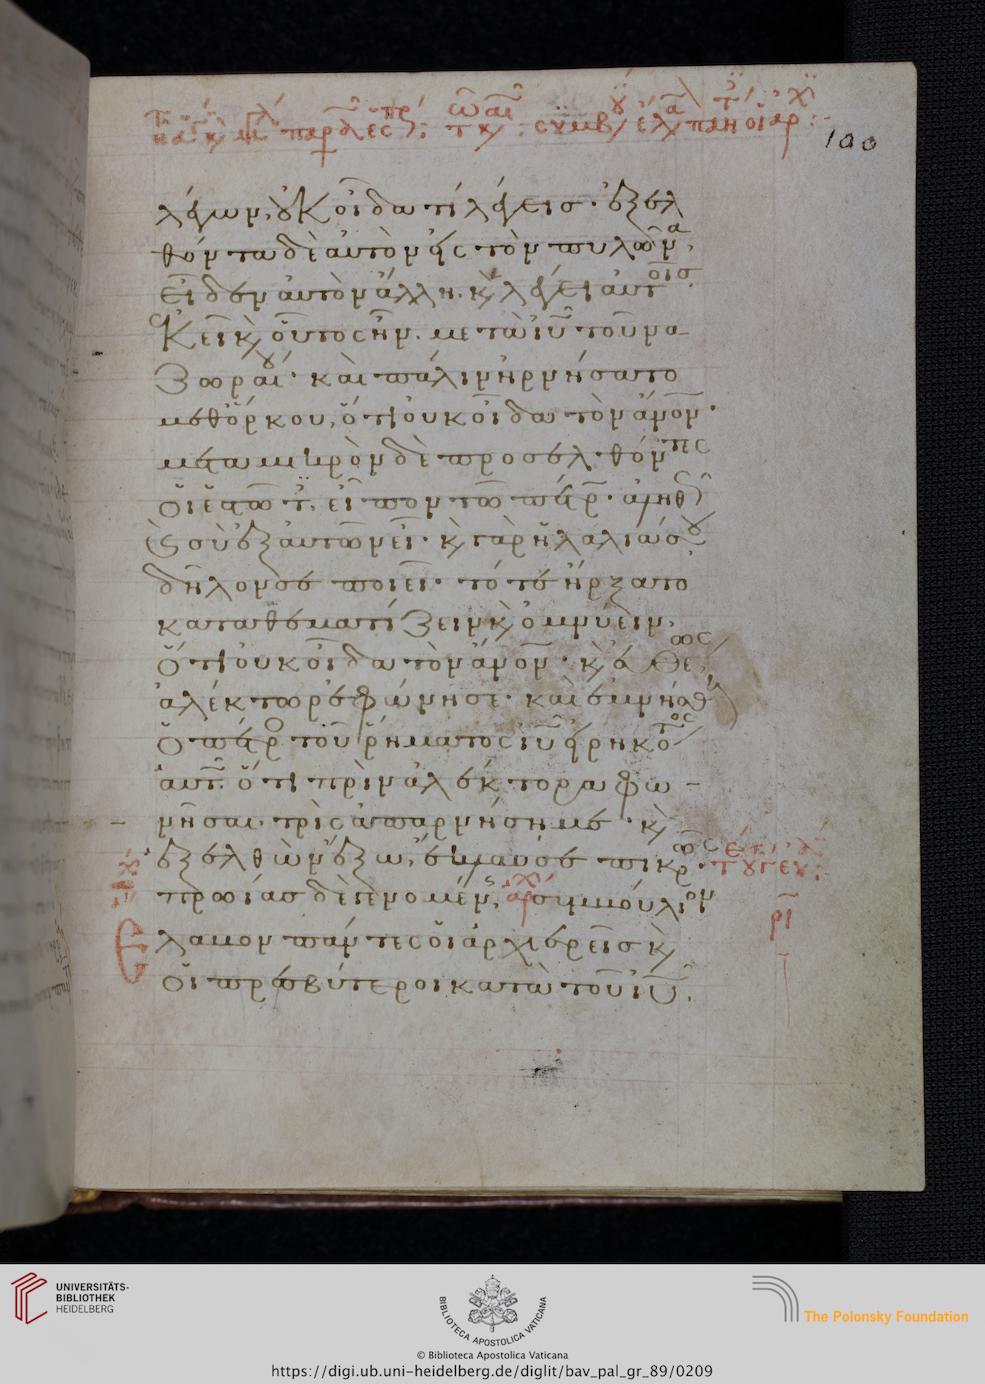 λέγων, οὐκ οἶδα τί λέγεις· ἐξελ
θόντα δὲ αὐτὸν εἰς τὸν πυλῶνα,
εἶδεν αὐτὸν ἄλλη. κ(αὶ) λέγει αὐτοῖς
ἐκεῖ κ(αὶ) οὗτος ἦν. μετὰ ἰῦ τοῦ να
ζωραίου· καὶ πάλιν ἠρνήσατο
μεθ' ὅρκου, ὅτι οὐκ οἶδα τὸν ἄνον·
μετὰ μικρὸν δὲ προσελθόντες
οἱ ἑστῶτ. εἶπον τῶ πέτρ. ἀληθ
(καὶ) σὺ ἐξ αὐτῶν εἶ· κ(αὶ) γὰρ ἡ λαλιά σου
δῆλόν σε ποιεῖ· τότε ἤρξατο
καταθεματίζειν κ(αὶ) ὀμνύειν,
ὅτι οὐκ οἶδα τὸν ἄνον· κ(αὶ) εὐθέως
ἀλέκτωρ ἐφώνησε· καὶ ἐμνήσθη
ὁ πέτρο τοῦ ῥήματος ἰῦ εἰρηκότος
αὐτ. ὅτι πρὶν ἀλέκτορα φω
νῆσαι, τρὶς ἀπαρνήση με· κ(αὶ)
ἐξελθὼν ἔξω, ἔκλαυσε πικρῶς·
πρωίας δὲ γενομένς, αρχ συμβούλιον
Ἔλαβον πάντες οἱ ἀρχιερεῖς κ(αὶ)
οἱ πρεσβύτεροι κατὰ τοῦ ἰῦ,
UNIVERSITÄTS-
BIBLIOTHEK
HEIDELBERG
BIBLIOTECA APOSTOLICA VATICANA
The Polonsky Foundation
© Biblioteca Apostolica Vaticana
https://digi.ub.uni-heidelberg.de/diglit/bav_pal_gr_89/0209